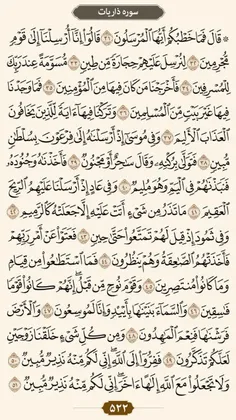 سوره ذاریات
۞ قَالَ فَمَا خَطْبُكُمْ أَيُّهَا الْمُرْسَلُونَ ﴿٣١﴾ قَالُوا إِنَّا أُرْسِلْنَا إِلَىٰ قَوْمٍ
مُجْرِمِينَ ﴿٣٢﴾ لِنُرْسِلَ عَلَيْهِمْ حِجَارَةً مِنْ طِينٍ ﴿٣٣﴾ مُسَوَّمَةً عِنْدَ رَبِّكَ
لِلْمُسْرِفِينَ ﴿٣٤﴾ فَأَخْرَجْنَا مَنْ كَانَ فِيهَا مِنَ الْمُؤْمِنِينَ ﴿٣٥﴾ فَمَا وَجَدْنَا
فِيهَا غَيْرَ بَيْتٍ مِنَ الْمُسْلِمِينَ ﴿٣٦﴾ وَتَرَكْنَا فِيهَا آيَةً لِلَّذِينَ يَخَافُونَ
الْعَذَابَ الْأَلِيمَ ﴿٣٧﴾ وَفِي مُوسَىٰ إِذْ أَرْسَلْنَاهُ إِلَىٰ فِرْعَوْنَ بِسُلْطَانٍ
مُبِينٍ ﴿٣٨﴾ فَتَوَلَّىٰ بِرُكْنِهِ وَقَالَ سَاحِرٌ أَوْ مَجْنُونٌ ﴿٣٩﴾ فَأَخَذْنَاهُ وَجُنُودَهُ
فَنَبَذْنَاهُمْ فِي الْيَمِّ وَهُوَ مُلِيمٌ ﴿٤٠﴾ وَفِي عَادٍ إِذْ أَرْسَلْنَا عَلَيْهِمُ الرِّيحَ
الْعَقِيمَ ﴿٤١﴾ مَا تَذَرُ مِنْ شَيْءٍ أَتَتْ عَلَيْهِ إِلَّا جَعَلَتْهُ كَالرَّمِيمِ ﴿٤٢﴾
وَفِي ثَمُودَ إِذْ قِيلَ لَهُمْ تَمَتَّعُوا حَتَّىٰ حِينٍ ﴿٤٣﴾ فَعَتَوْا عَنْ أَمْرِ رَبِّهِمْ
فَأَخَذَتْهُمُ الصَّاعِقَةُ وَهُمْ يَنْظُرُونَ ﴿٤٤﴾ فَمَا اسْتَطَاعُوا مِنْ قِيَامٍ
وَمَا كَانُوا مُنْتَصِرِينَ ﴿٤٥﴾ وَقَوْمَ نُوحٍ مِنْ قَبْلُ إِنَّهُمْ كَانُوا قَوْمًا
فَاسِقِينَ ﴿٤٦﴾ وَالسَّمَاءَ بَنَيْنَاهَا بِأَيْدٍ وَإِنَّا لَمُوسِعُونَ ﴿٤٧﴾ وَالْأَرْضَ
فَرَشْنَاهَا فَنِعْمَ الْمَاهِدُونَ ﴿٤٨﴾ وَمِنْ كُلِّ شَيْءٍ خَلَقْنَا زَوْجَيْنِ
لَعَلَّكُمْ تَذَكَّرُونَ ﴿٤٩﴾ فَفِرُّوا إِلَى اللَّهِ إِنِّي لَكُمْ مِنْهُ نَذِيرٌ مُبِينٌ ﴿٥٠﴾
وَلَا تَجْعَلُوا مَعَ اللَّهِ إِلَٰهًا آخَرَ إِنِّي لَكُمْ مِنْهُ نَذِيرٌ مُبِينٌ ﴿٥١﴾
۵۲۲